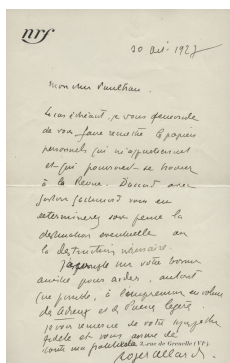 nrf
20 Oct. 1927
Mon cher Paulhan.
Le cas échéant, je vous demande
de vous faire remettre les papiers
personnels qui m'appartiennent
et qui pourraient se trouver
à la Revue. D'accord avec
Gaston Gallimard vous en
déterminerez sans peine la
destination éventuelle ou
la destruction nécessaire.
sur votre bonne
amitié pour aider, autant
que possible, à en volume
de et de Poésie légère.
Je vous remercie de votre sympathie
fidèle et vous assure de
toute ma gratitude
3, rue de Grenelle (VIe).
Roger Allard